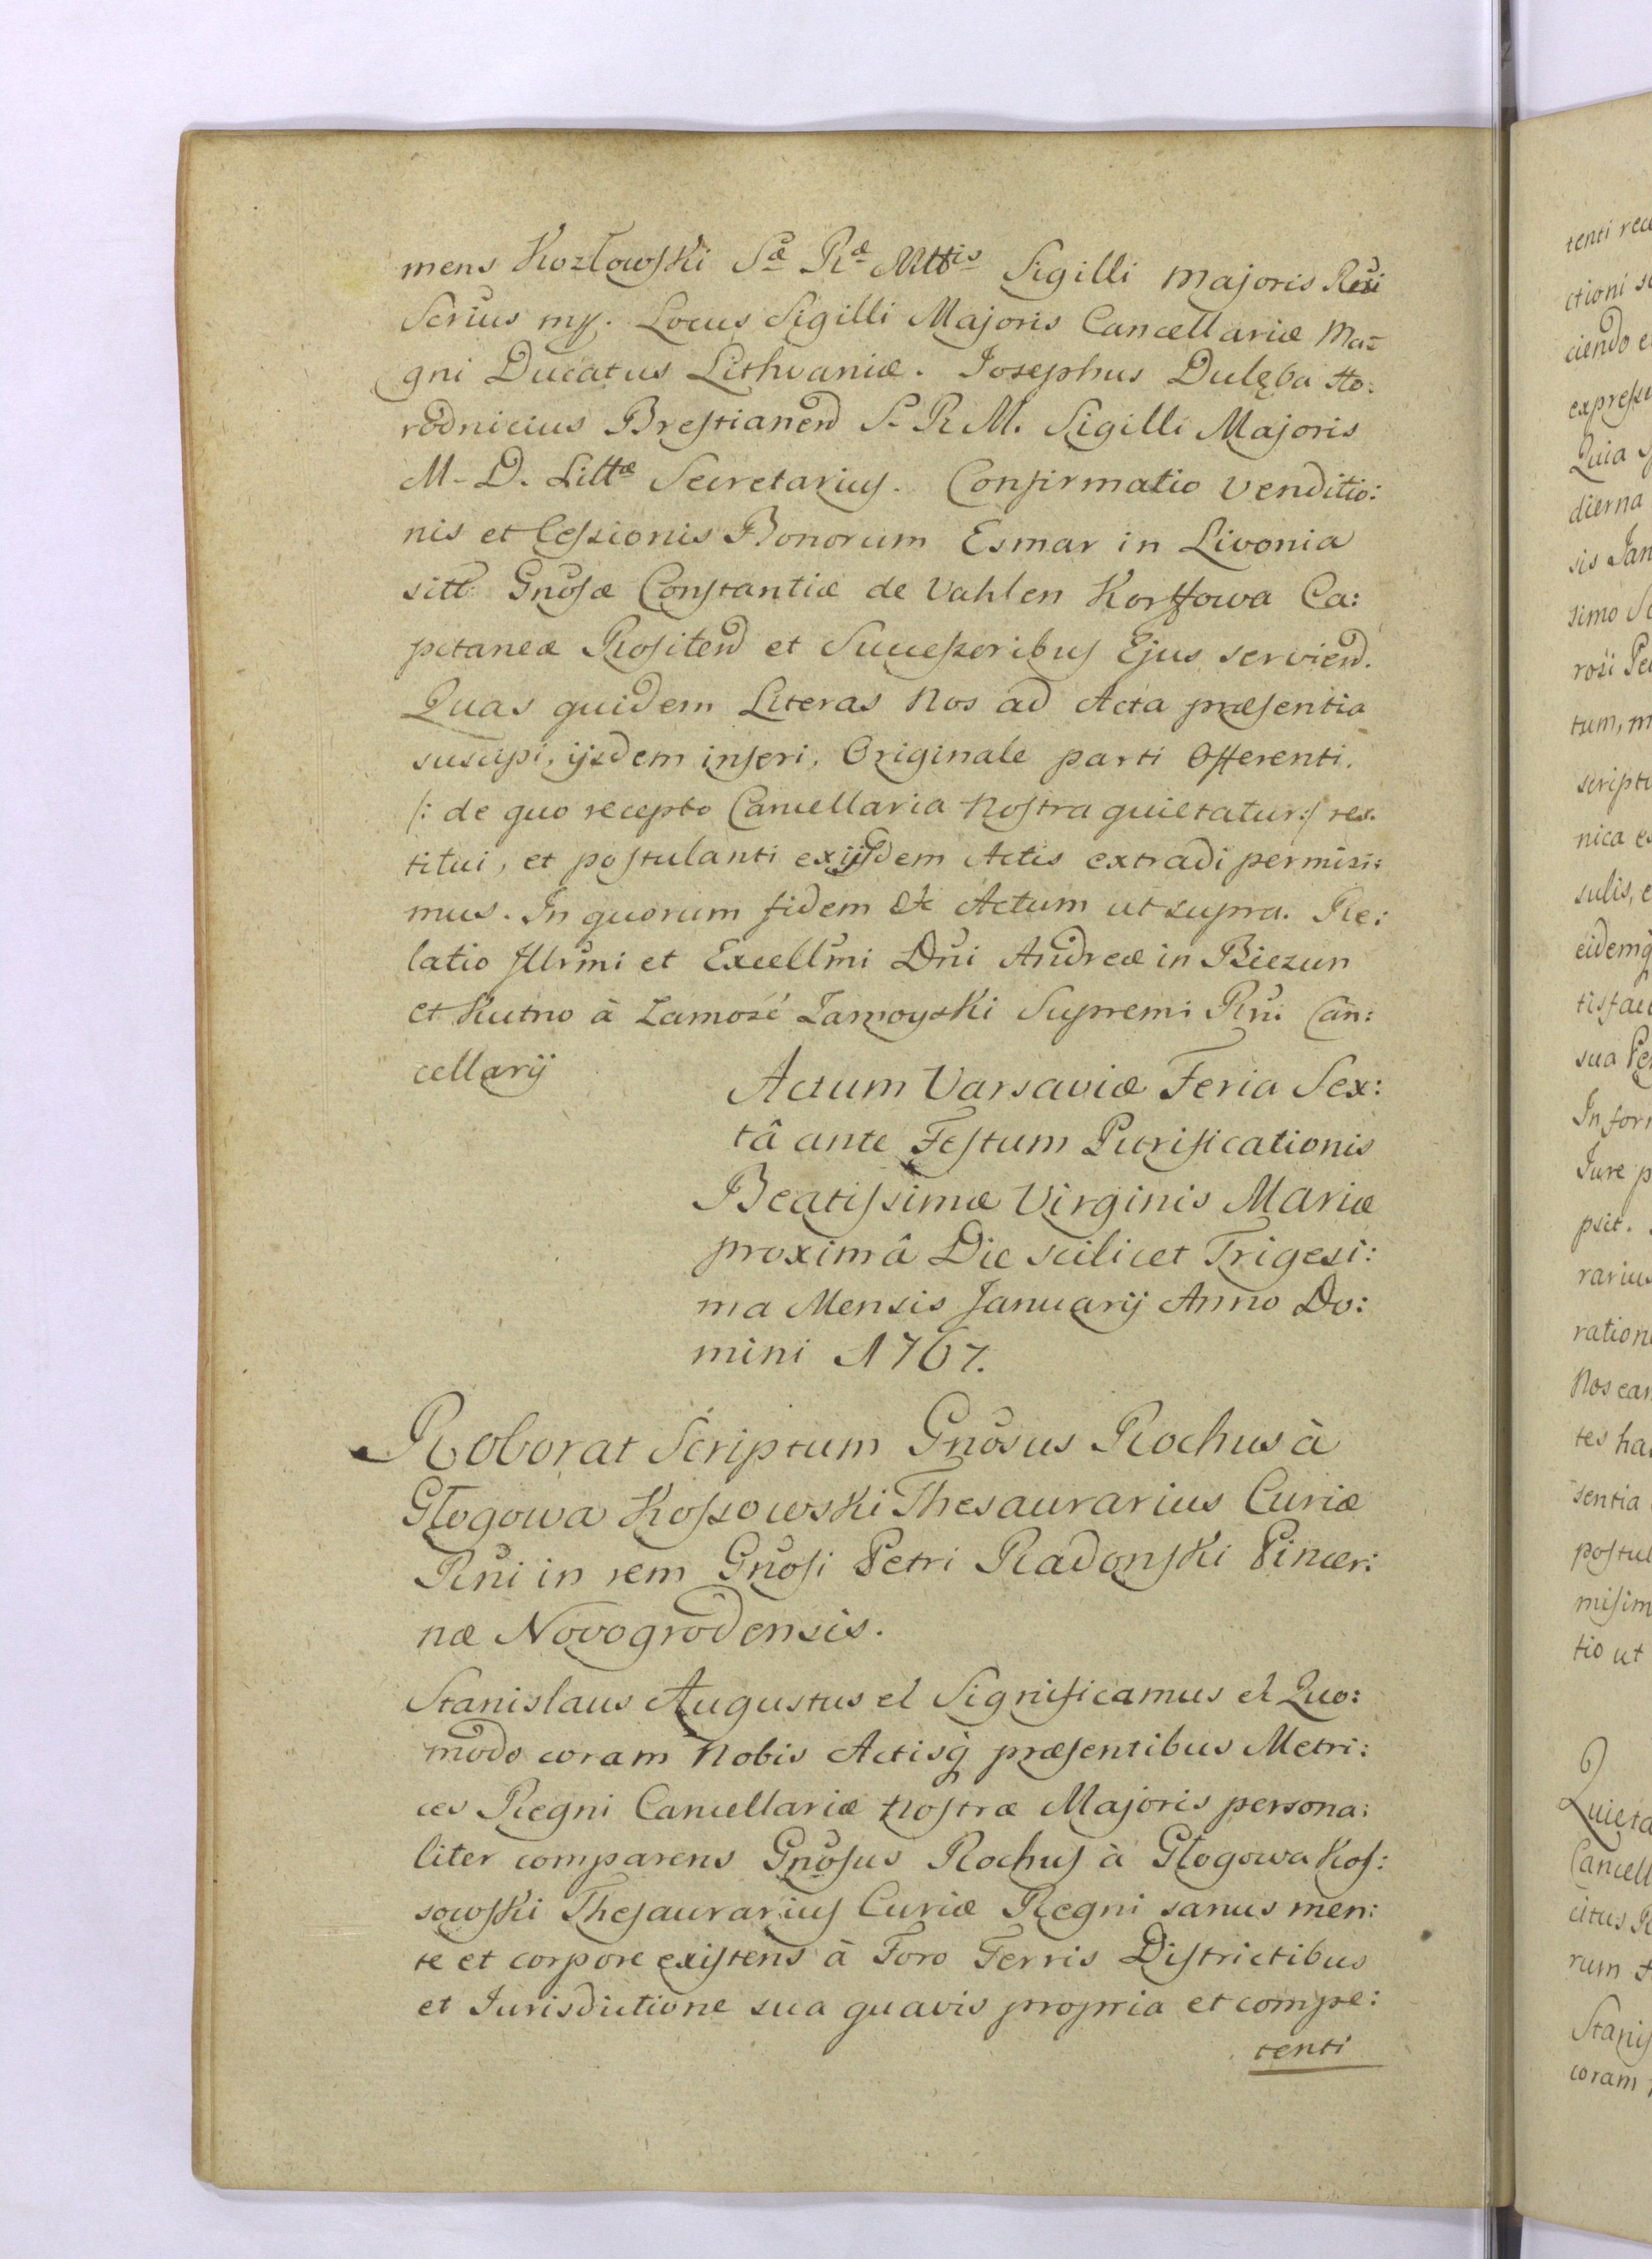 mens Kozłowski Sæ Ræ Mttis Sigilli majoris Rni
Scrius mp. Locus Sigilli Majoris Cancellariæ Ma=
gni Ducatus Lithvaniæ. Josephus Dulęba Ho:
rodnicius Brestianen S. R M. Sigilli Majoris
M. D. Littæ Secretarius. Confirmatio Venditio:
nis et Cessionis Bonorum Esmar in Livonia
sitt Gnosæ Constantiæ de Vahlen Korffowa Ca:
pitaneæ Rositen et Successoribus Ejus servien.
Quas quidem Literas Nos ad Acta præsentia
suscipi, ijsdem inseri, Originale parti Offerenti.
/: de quo recepto Cancellaria Nostra quietatur:/ res:
titui, et postulanti ex ijsdem Actis extradi permisi:
mus. In quorum fidem &c Actum ut supra. Re:
latio Jllrmi et Excellmi Dni Andreæ in Biezun
et Kutno à Zamość Zamoyski Supremi Rni Can:
cellarij
Actum Varsaviæ Feria Sex:
tâ ante Festum Purificationis
Beatissimæ Virginis Mariæ
proximâ Die scilicet Trigesi:
ma Mensis Januarij Anno Do:
mini 1767.
Roborat Scriptum Gnosus Rochus à
Głogowa Kossowski Thesaurarius Curiæ
Rni in rem Gnosi Petri Radonski Pincer:
næ Novogrodensis.
Stanislaus Augustus et Significamus et Quo:
modo coram Nobis Actisq præsentibus Metri:
ces Regni Cancellariæ Nostræ Majoris persona:
liter comparens Gnosus Rochus à Głogowa Kos:
sowski Thesaurarius Curiæ Regni sanus men:
te et corpore existens à Foro Terris Districtibus
et Jurisdictione sua quavis propria et compe:
tenti
ctioni
ciendo
Quia
dierna
sis Jan
simo
tum, m
nica
sulis, e
sua
Jure p
psit.
Nos
tes
sentia
tio ut
Cancell
rum
coram